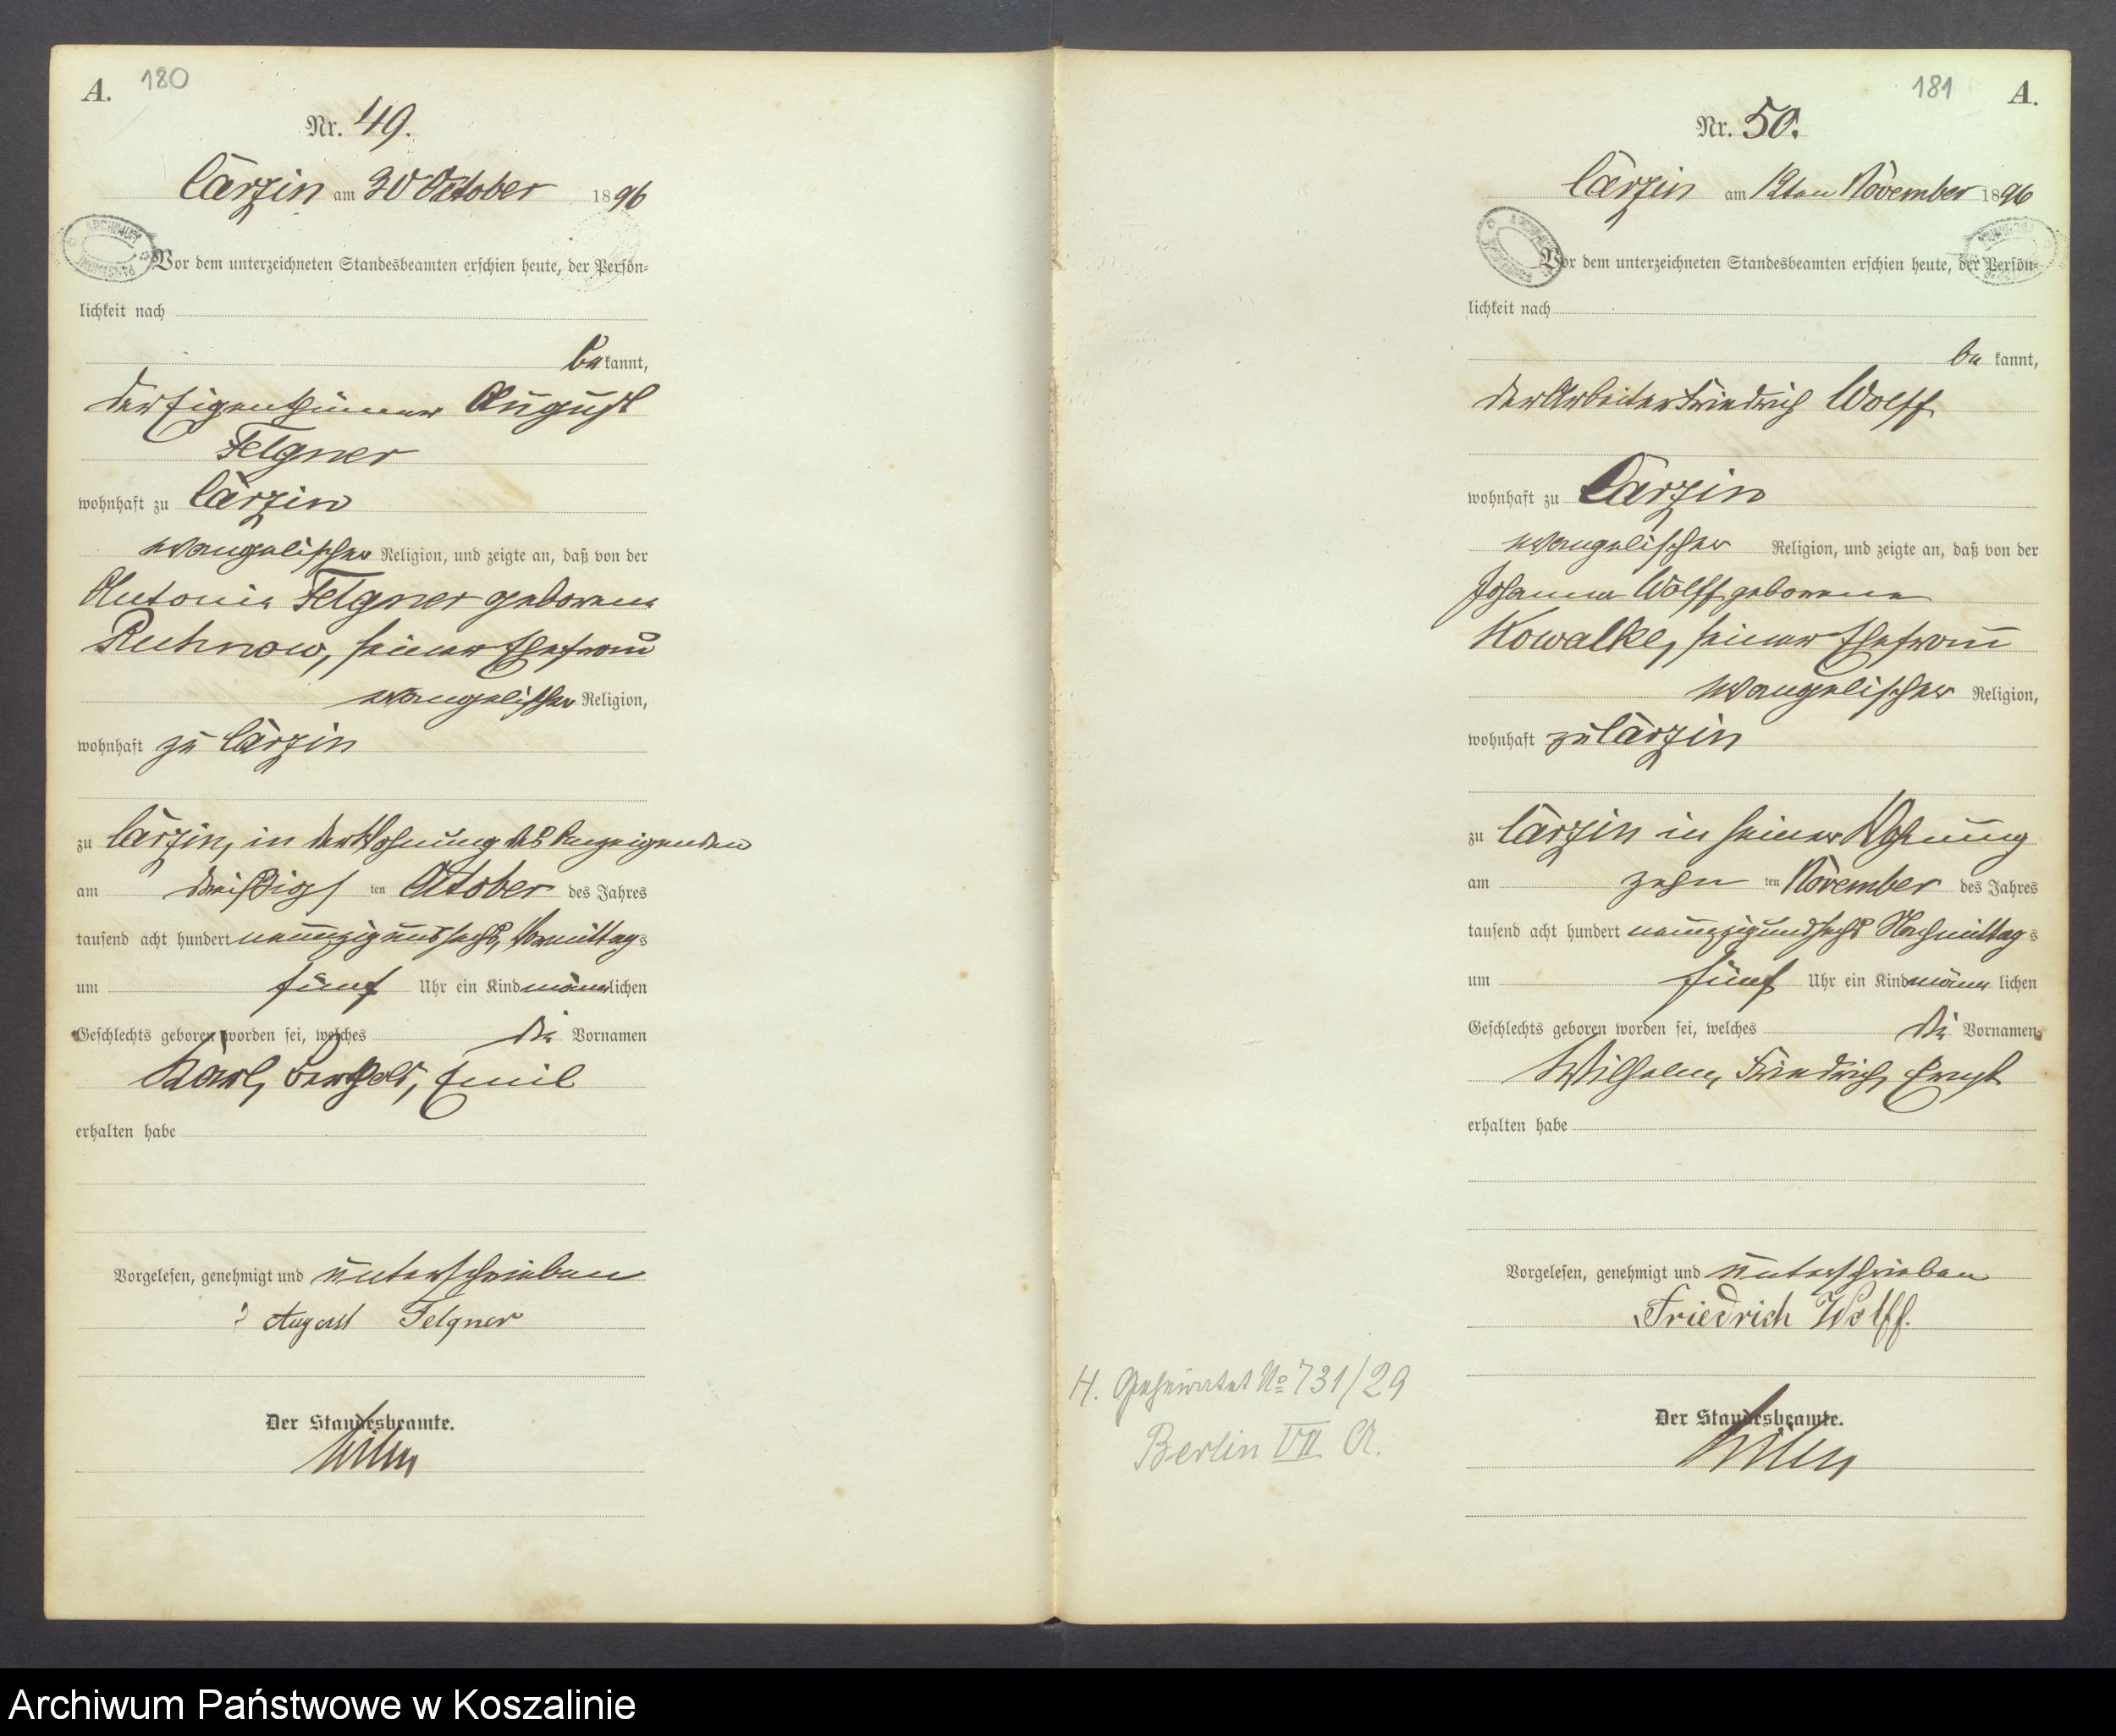 A. 180
Nr. 49.
Carzin am 30 October 1896
Vor dem unterzeichneten Standesbeamten erschien heute, der Persön=
lichkeit nach
be kannt,
der Eigenthümer August
Felgner
wohnhaft zu Carzin
evangelischer Religion, und zeigte an, daß von der
Antonie Felgner geborene
Ruhnow, seiner Ehefrau
evangelischer Religion,
wohnhaft zu Carzin
zu Carzin, in der Wohnung des Anzeigenden
am dreißigsten October des Jahres
tausend acht hundert neunzig und sechs, Vormittags
um fünf Uhr ein Kind männlichen
Geschlechts geboren worden sei, welches die Vornamen
Karl, Berthold, Emil
erhalten habe
Vorgelesen, genehmigt und unterschrieben
August Felgner
Der Standesbeamte.
181 A.
Nr. 50.
Carzin am 12ten November 1896
ARCHIWUM
Vor dem unterzeichneten Standesbeamten erschien heute, der Persön=
lichkeit nach
be kannt,
der Arbeiter Friedrich Wolff
wohnhaft zu Carzin
evangelischer Religion, und zeigte an, daß von der
Johanna Wolff geborene
Kowalke, seiner Ehefrau
evangelischer Religion,
wohnhaft zu Carzin
zu Carzin in seiner Wohnung
am zehnten November des Jahres
tausend acht hundert neunzig und sechs Nachmittags
um fünf Uhr ein Kind männlichen
Geschlechts geboren worden sei, welches die Vornamen
Wilhelm, Friedrich, Ernst
erhalten habe
Vorgelesen, genehmigt und unterschrieben
Friedrich Wolff.
Der Standesbeamte.
H. Geheiratet No 731/29
Berlin VII A.
Archiwum Państwowe w Koszalinie